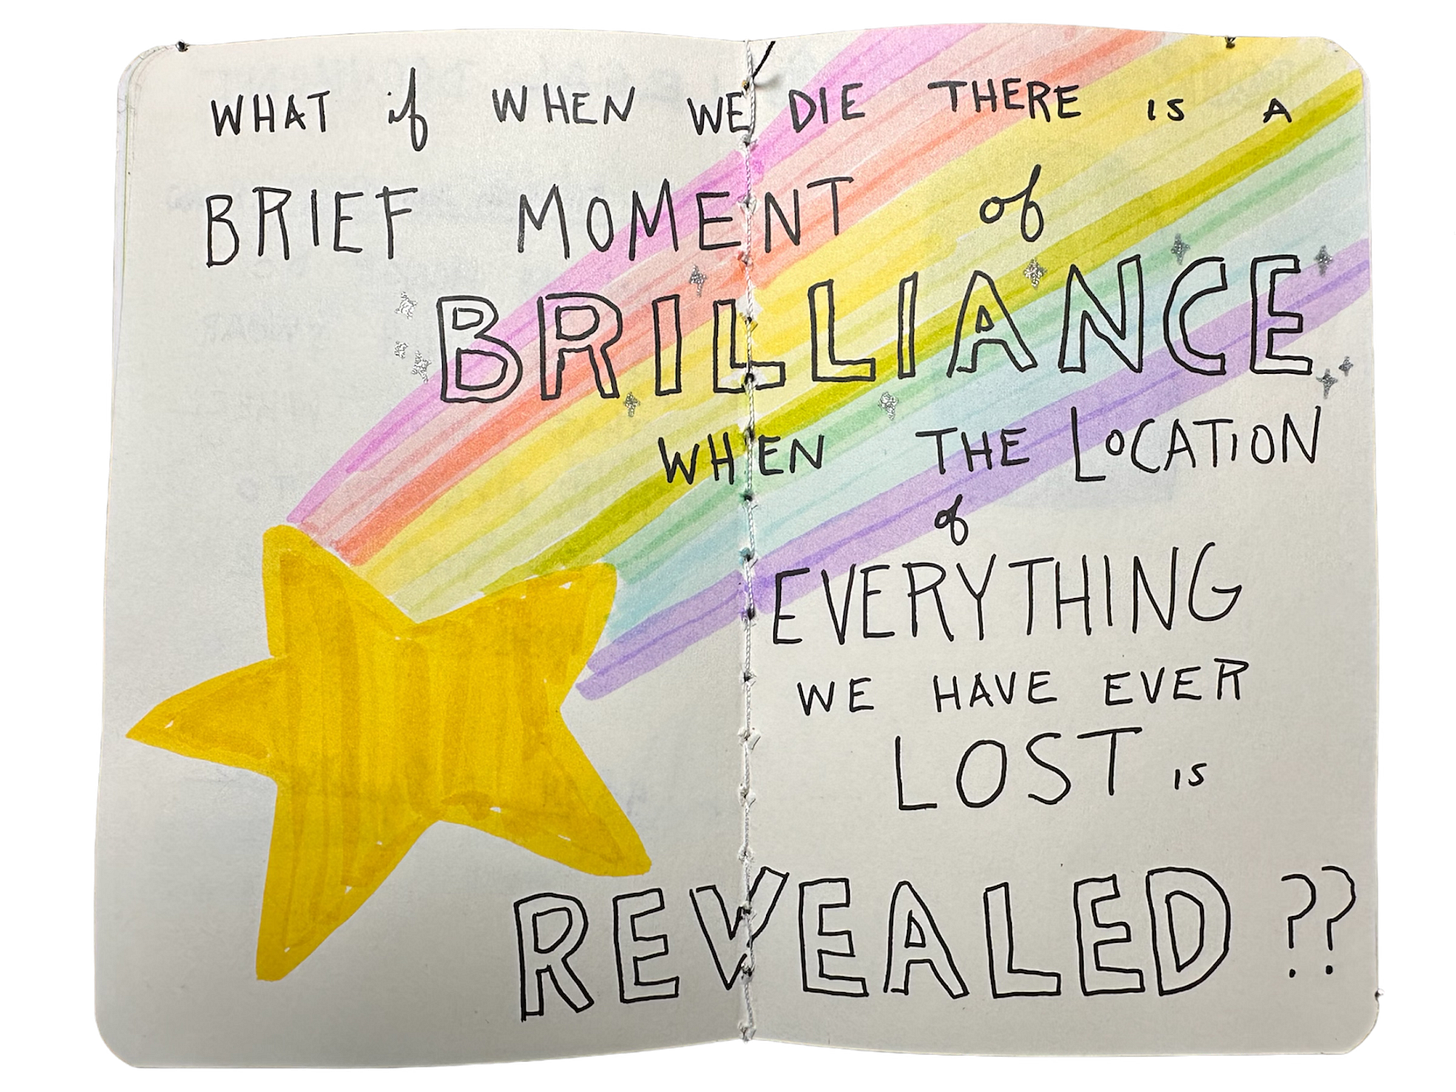 WHAT if WHEN WE DIE THERE IS A
BRIEF MOMENT of
BRILLIANCE
WHEN THE LOCATION
of
EVERYTHING
WE HAVE EVER
LOST IS
REVEALED ??